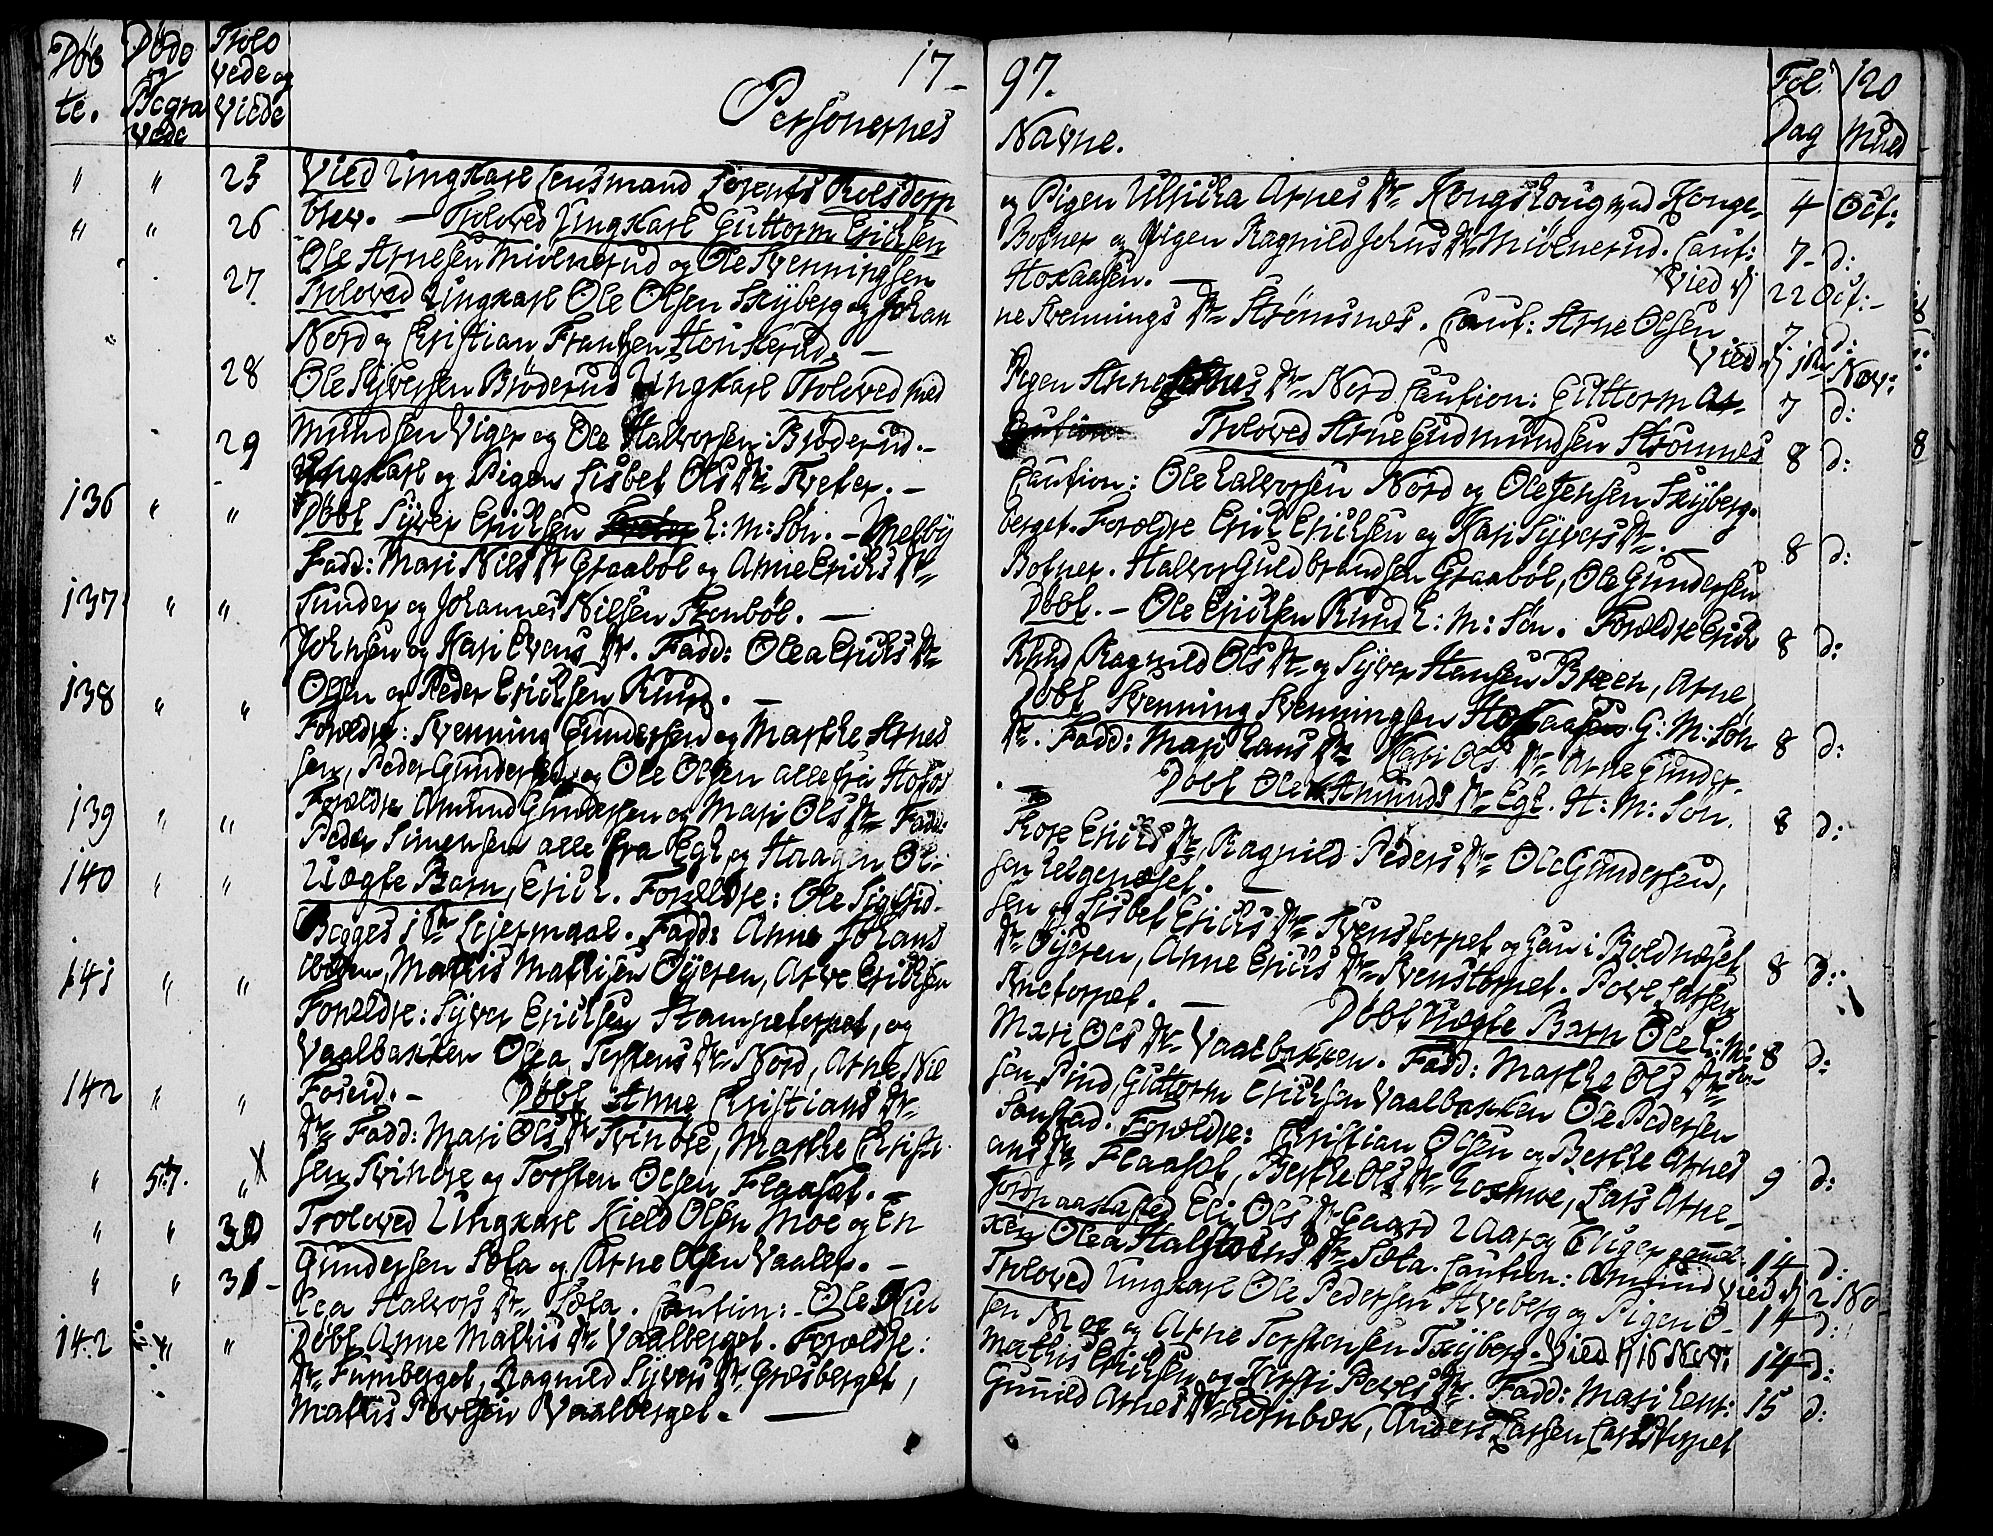 Døb
te.
Døde
og
Begra
vede
Trolo
vede og
Viede
17-
97.
Personernes
Navne.
Fol. 120
Dag Mned
" " 25 Vied Ungkarl Lensmand Lorents Rolsdorph
og Pigen Ulricha Arnes Dr Kongshoug ved Konge- 4 Oct:
" " 26 Troloved Ungkarl Guttorm Erichsen
Botner og Pigen Ragnild Johns Dr Miølnerud. Caut: 7 d:
Ole Arnesen Miølnerud og Ole Svenningsen
Hoxaasen. — Vied d 22 Oct:
27 Troloved Ungkarl Ole Olsen Skyberg og Johan
ne Svennings Dr Strømsnes. Caut: Arne Olsen 7 d:
Nord og Christian Frantsen Honkerud. — Vied d Nov:
28 Ole Syversen Brøderud Ungkarl Troloved med
Pigen Anne Dr Nord Caution: Guttorm 7 d:
mundsen Viger og Ole Halvorsen Brøderud.-
29 Troloved Arne Gudmundsen Strømnes 8 d:
Ungkarl og Pigen Lisbet Ols Dr Tveter.-
Caution: Ole Halvorsen Nord og Ole Jensen Skyberg.
136 " " Døbt Syver Erichsen E: M: Søn.- Melby
berget. Forældre Erich Erichsen og Kari Syvers Dr. 8 d:
Fadd: Mari Nils Dr Graabøl og Anne Erichs Dr
Botner. Halvor Guldbrandsen Graabøl, Ole Gundersen
137 " " Sunder og Johannes Nilsen Stenbøl. —
Døbt.- Ole Erichsen Rund E: M: Søn. Forældre Erich 8 d:
Johnsen og Kari Evens Dr. Fadd: Olea Erichs Dr
Rund, Ragnild Ols Dr og Syver Hansen Breen, Arne
138 " " Olsen og Peder Erichsen Rund. —
Døbt Svenning Svenningsen Hoxaasen G: M: Søn 8 d:
Forældre: Svenning Gundersen og Marthe Arnes
Dr. Fadd: Mari Hans Dr Kari Ols Dr Arne Gunder-
sen, Peder Gundersen og Ole Olsen alle fra
139 " " Døbt Ole Amunds Dr Egh. H: M: Søn. 8 d:
Forældre Amund Gundersen og Mari Ols Dr Fadd:
Tore Erichs Dr, Ragnild Peders Dr Ole Gundersen,
Peder Simensen alle fra Egh, og Haagen Ol-
sen Helgenæset. —
140 " " Uægte Barn, Erich. Forældre: Ole Sigfrid-
sen og Lisbet Erichs Dr Svenstorpet og han i Boldnæset 8 d:
Begges 1ste Lejermaal. Fadd: Anne Johans
Dr Øyeren, Anne Erichs Dr Svenstorpet. Povel Larsen
141 " " Mathis Mathisen Øyeren, Arne Erichsen
Knetorpet. — Døbt Uægte Barn Ole E: M: Søn 8 d:
Forældre: Syver Erichsen Stampetorpet, og
Mari Ols Dr Vaalbakken. Fadd: Marthe Ols Dr
Vaalbakken Olea Torstens Dr Nord, Arne Niel
sen Sind, Guttorm Erichsen Vaalbakken Ole Pedersen
142 " " Foseid.- Døbt Anne Christians Dr
Sanstad. Forældre: Christian Olsen og Berthe Arnes
Dr Fadd: Mari Ols Dr Tvindre, Marthe Christi
ans Dr Flaaset, Berthe Ols Dr Rosmoe, Lars Arne-
" 57. " sen Tvindre og Torsten Olsen Flaaset.-
Jordpaakasted Eli Ols Dr Gaard 2 Aar og Uger gaml. 9 d:
" " 30 Troloved Ungkarl Kield Olsen Moe og En
ken Olea Halvors Dr Sæta. Caution: Amund 14 d:
Gundersen Sæta og Arne Olsen Vaaler.- Vied d 2 No
" " 31- Troloved Ungkarl Ole Pedersen Aveberg og Pigen O- 14 d:
lea Halvors Dr Sæta. Caution: Ole Niel
sen Moe og Arne Torstensen Skyberg. Vied d 16 Nov:
142 " " Døbt Anne Mathis Dr Vaalberget. Forældre:
Mathis Erichsen og Kirsti Povels Dr. Fadd: Mari Hent: 14 d:
Dr Furuberget, Ragnild Syvers Dr Græsberget,
Gunild Arnes Dr Kornbæk, Anders Larsen Larstorpet 15 d:
Mathis Povelsen Vaalberget. —